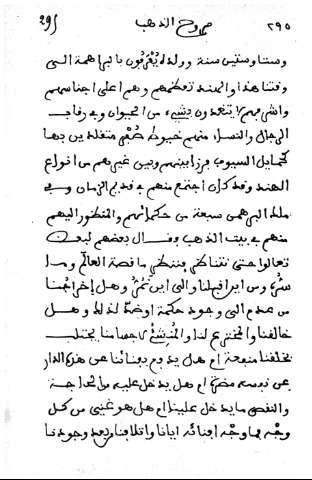 ٢٩٥ مروج الذهب 295
وستا وستين سنة وولده يُعْرَفون بالبراهمة الى
وقتنا هذا والهند تعظمهم وهم اعلى اجناسهم
واشرفهم لا يتغذون بشىء من الحيوان وفى رقاب
الرجال والنساء منهم خيوط صُفْر متقلدين بها
كحمايل السيوف فرزا بينهم وبين غيرهم من انواع
الهند وقد كان اجتمع منهم فى قديم الزمان وفى
ملك البرهمن سبعة من حكمائهم والمنظور اليهم
منهم فى بيت الذهب وقال بعضهم لبعض
تعالوا حتى نتناظر وننظر ما قصة العالم وما
سرّه ومن اين اقبلنا والى اين نمُرّ وهل إخراجُنا
من عدم الى وجود حكمة او ضدّ لذلك وهل
خالقنا والمخترع لنا والمُنشِئُ لاجسامنا يجتلب
بخلقنا منفعة ام هل يدفع بفنائنا عن هذه الدار
عن نفسه مضرّة ام هل يدخل عليه من الحاجة
والنقص ما يدخل علينا ام هل هو غنى من كل
وجه فما وجه افنائه ايانا واتلافنا وبعد وجودنا